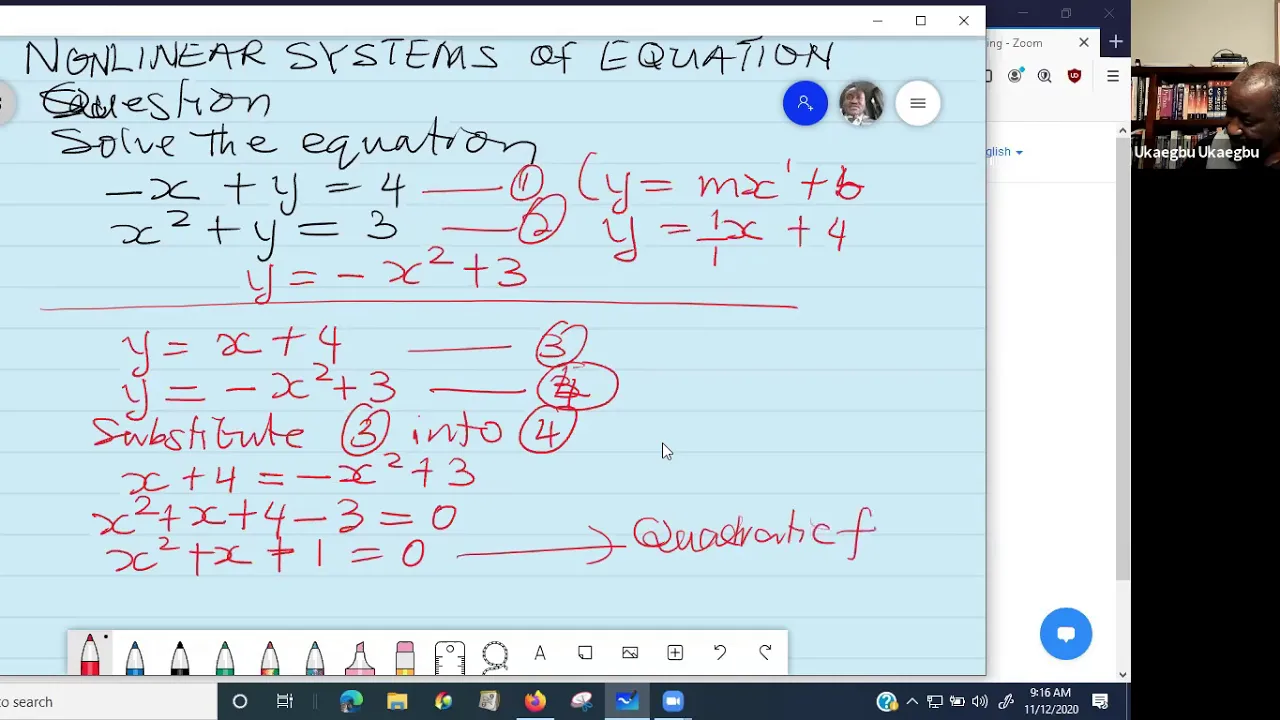 ing - Zoom
NONLINEAR SYSTEMS OF EQUATION
Question
Solve the equation
-x + y = 4 —— ① (y = mx¹ + b
x² + y = 3 —— ② y = 1/1 x + 4
y = - x² + 3
y = x + 4 —— ③
y = - x² + 3 —— ④
Substitute ③ into ④
x + 4 = - x² + 3
x² + x + 4 - 3 = 0
x² + x + 1 = 0 ⟶ Quadratic f
glish
Ukaegbu Ukaegbu
A
to search
9:16 AM
11/12/2020